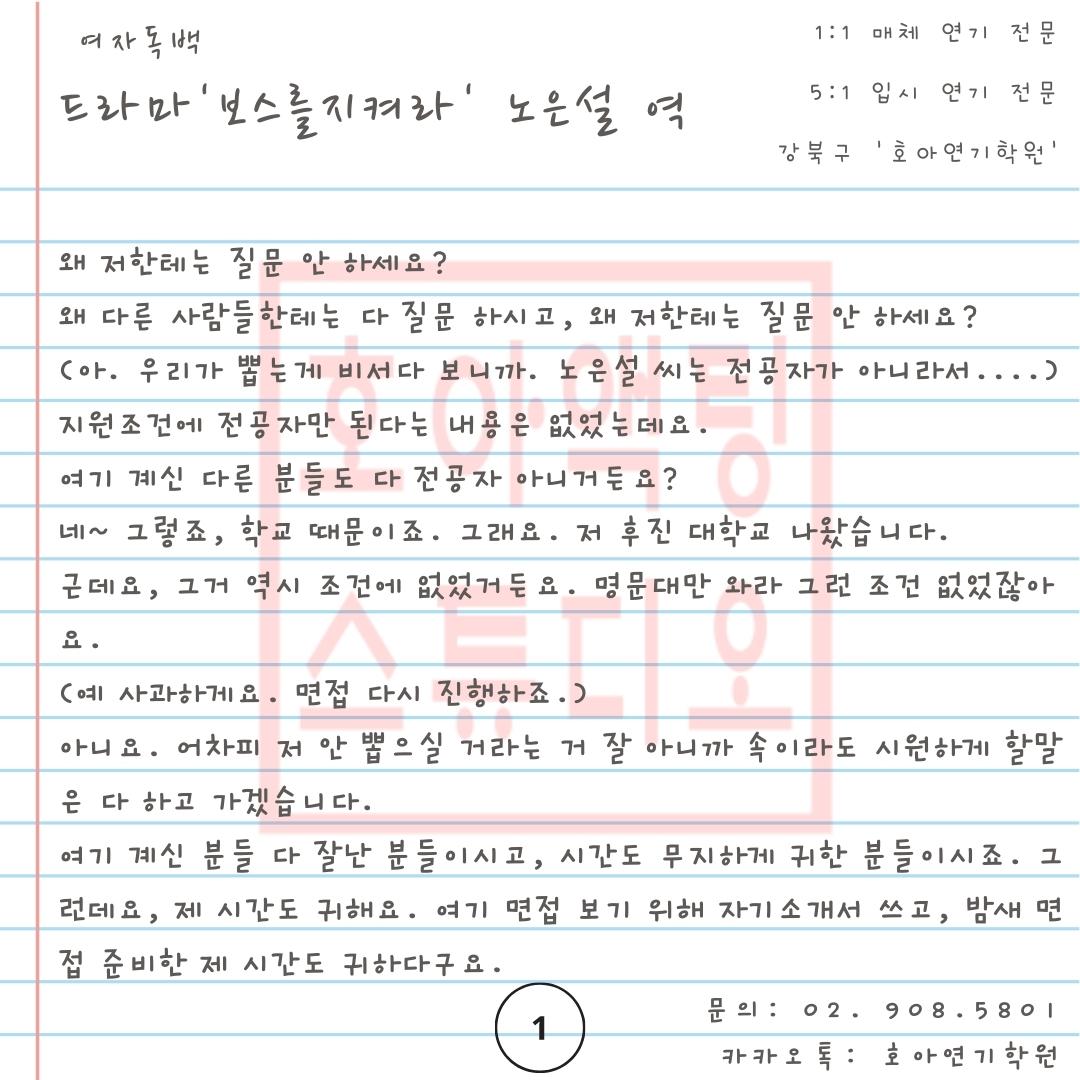 여자독백
드라마'보스를지켜라' 노은설 역
1:1 매체 연기 전문
5:1 입시 연기 전문
강북구 '호아연기학원'
왜 저한테는 질문 안 하세요?
왜 다른 사람들한테는 다 질문 하시고, 왜 저한테는 질문 안 하세요?
(아. 우리가 뽑는게 비서다 보니까. 노은설 씨는 전공자가 아니라서....)
지원조건에 전공자만 된다는 내용은 없었는데요.
여기 계신 다른 분들도 다 전공자 아니거든요?
네~ 그렇죠, 학교 때문이죠. 그래요. 저 후진 대학교 나왔습니다.
근데요, 그거 역시 조건에 없었거든요. 명문대만 와라 그런 조건 없었잖아
요.
(예 사과하게요. 면접 다시 진행하죠.)
아니요. 어차피 저 안 뽑으실 거라는 거 잘 아니까 속이라도 시원하게 할말
은 다 하고 가겠습니다.
여기 계신 분들 다 잘난 분들이시고, 시간도 무지하게 귀한 분들이시죠. 그
런데요, 제 시간도 귀해요. 여기 면접 보기 위해 자기소개서 쓰고, 밤새 면
접 준비한 제 시간도 귀하다구요.
호아액팅
스튜디오
1
문의: 02. 908.5801
카카오톡: 호아연기학원